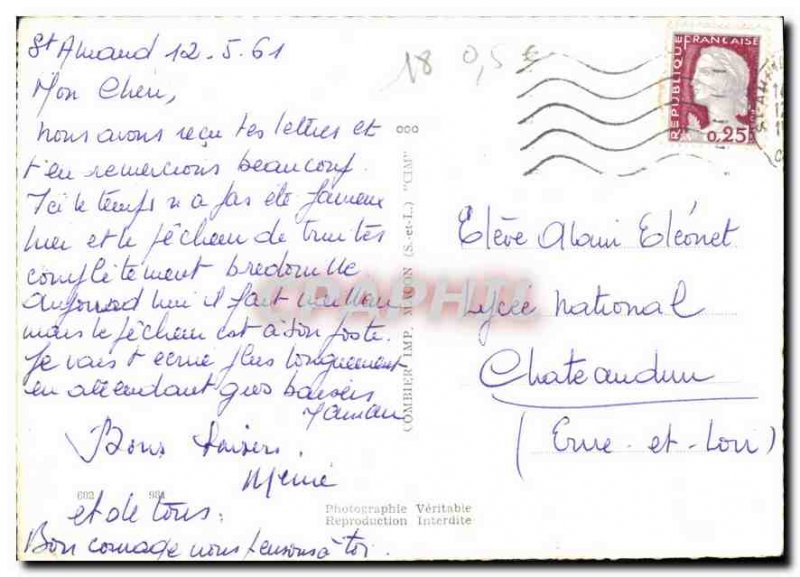 St Amand 12.5.61
18 0,5 €
Mon Chéri,
nous avons reçu tes lettres et
t'en remercions beaucoup.
Ici le temps n'a pas été fameux
hier et le pêcheur de truites
complètement bredouille
aujourd'hui il fait meilleur
mais le pêcheur est à son poste.
Je vais t'écrire plus longuement
en attendant gros baisers
Maman
Bons baisers.
Mémé
et de tous.
Bon courage nous pensons à toi.
602 984
COMBIER IMP. MACON (S.-et-L.) "CIM"
CPAPHIL
Photographie Véritable
Reproduction Interdite
REPUBLIQUE FRANÇAISE
0,25
Elève Alain Eléonet
Lycée National
Chateaudun
(Eure-et-Loir)